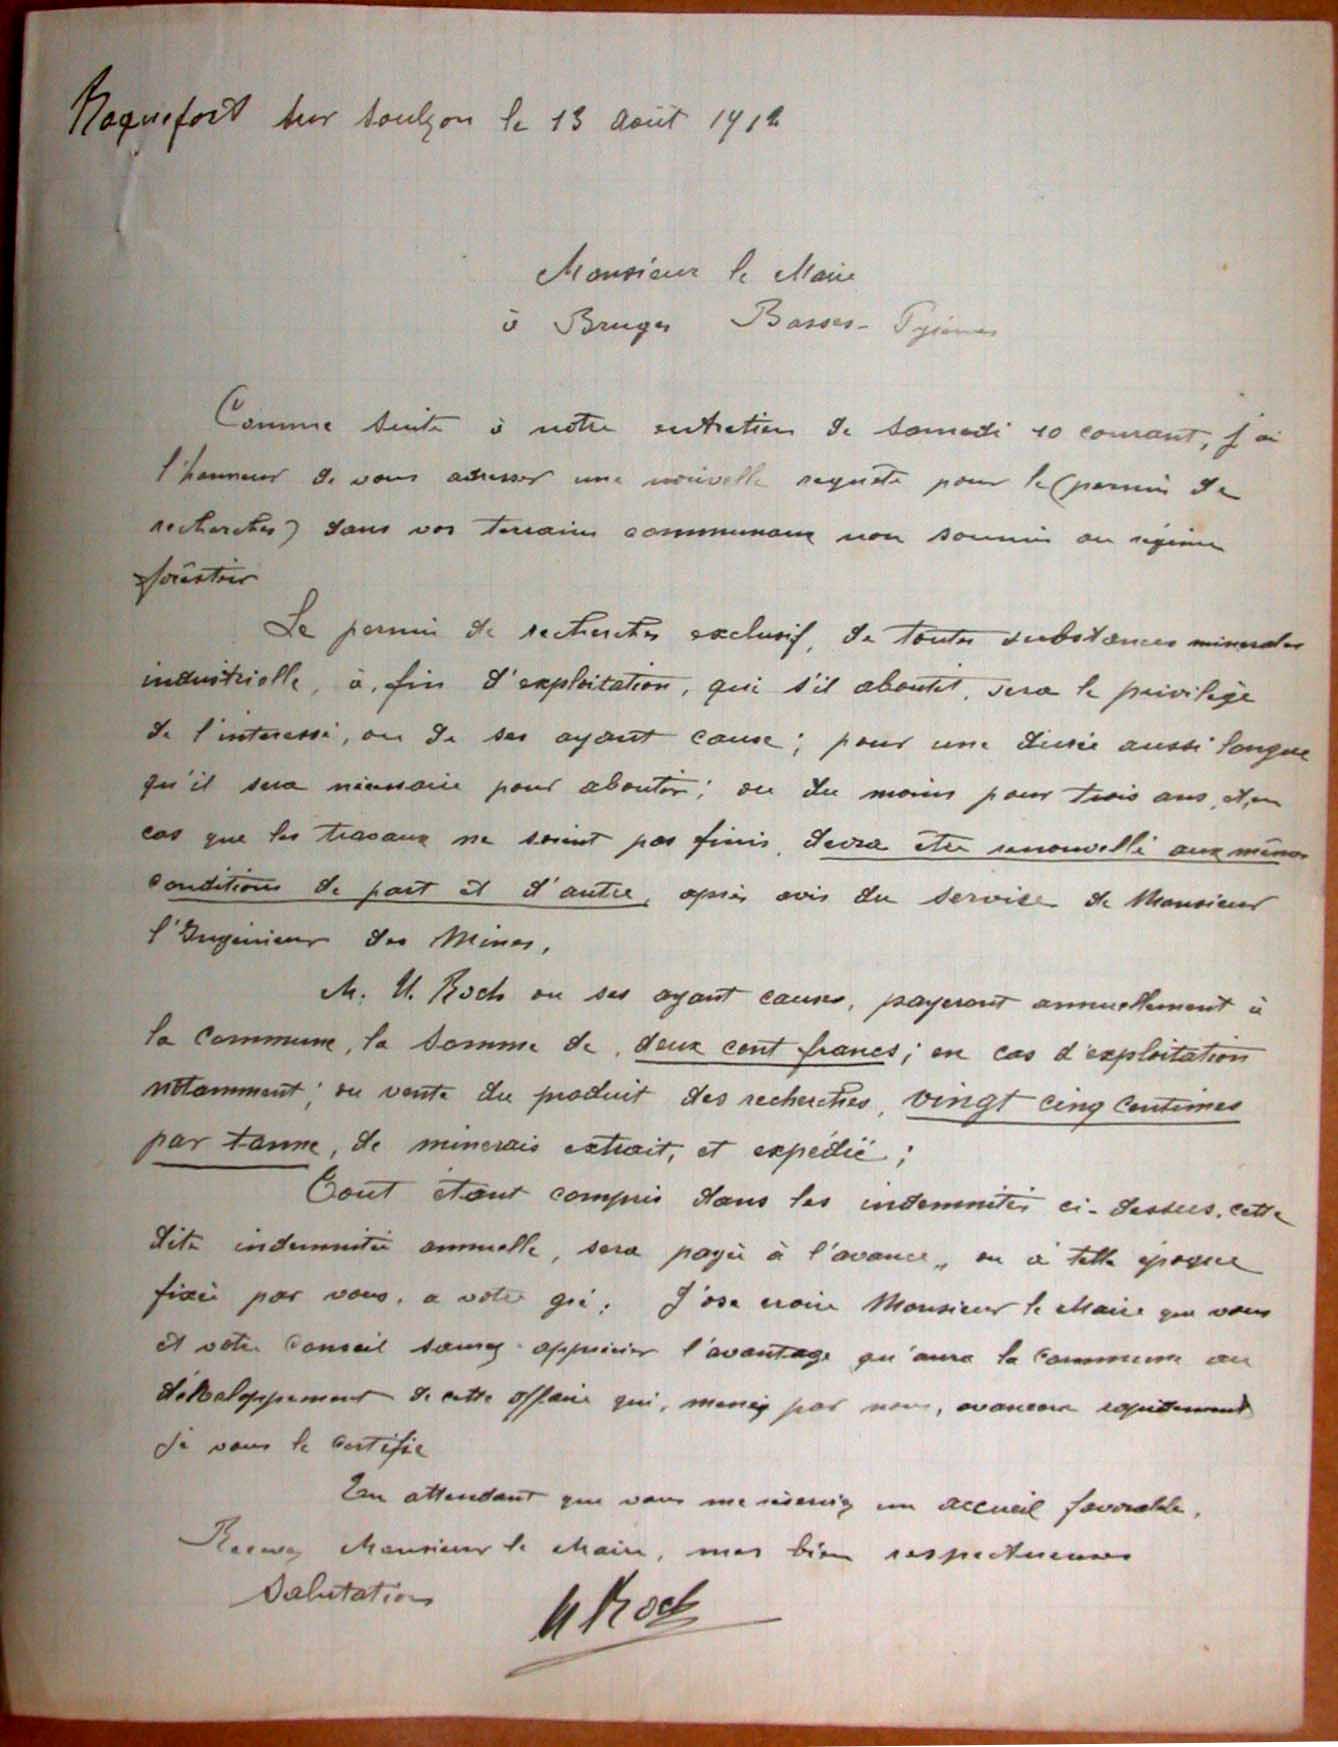 Roquefort sur Soulzon le 13 Août 1912
Monsieur le Maire
à Bruges Basses-Pyrénées
Comme suite à notre entretien de samedi 10 courant, j'ai
l'honneur de vous adresser une nouvelle requête pour le (permis de
recherches) dans vos terrains communaux non soumis au régime
forêstier
Le permis de recherches exclusif, de toutes substances minerales
industrielle, à, fin d'exploitation, qui s'il aboutit, sera le privilège
de l'interessé, ou de ses ayant cause; pour une durée aussi longue
qu'il sera nécessaire pour aboutir; ou du moins pour trois ans, et, en
cas que les travaux ne soient pas finis, devra être renouvellé aux mêmes
conditions de part et d'autre, après avis du service de Monsieur
l'Ingénieur des Mines,
M. U. Roch ou ses ayant causes, payeront annuellement à
la Commune, la somme de, deux cent francs; en cas d'exploitation
notamment; ou vente du produit des recherches, vingt cinq centimes
par tonne, de minerais extrait, et expédié;
Tout étant compris dans les indemnités ci-dessus, cette
dite indemnitée annuelle, sera payée à l'avance, ou à telle époque
fixée par vous, a votre gré. J'ose croire Monsieur le Maire que vous
et votre Conseil saurez apprécier l'avantage qu'aura la Commune au
dévaloppement de cette affaire qui, menée par nous, avancera rapidement
je vous le certifie
En attendant que vous me réserviez un accueil favorable,
Recevez Monsieur le Maire, mes bien respectueuses
Salutations
U Roch